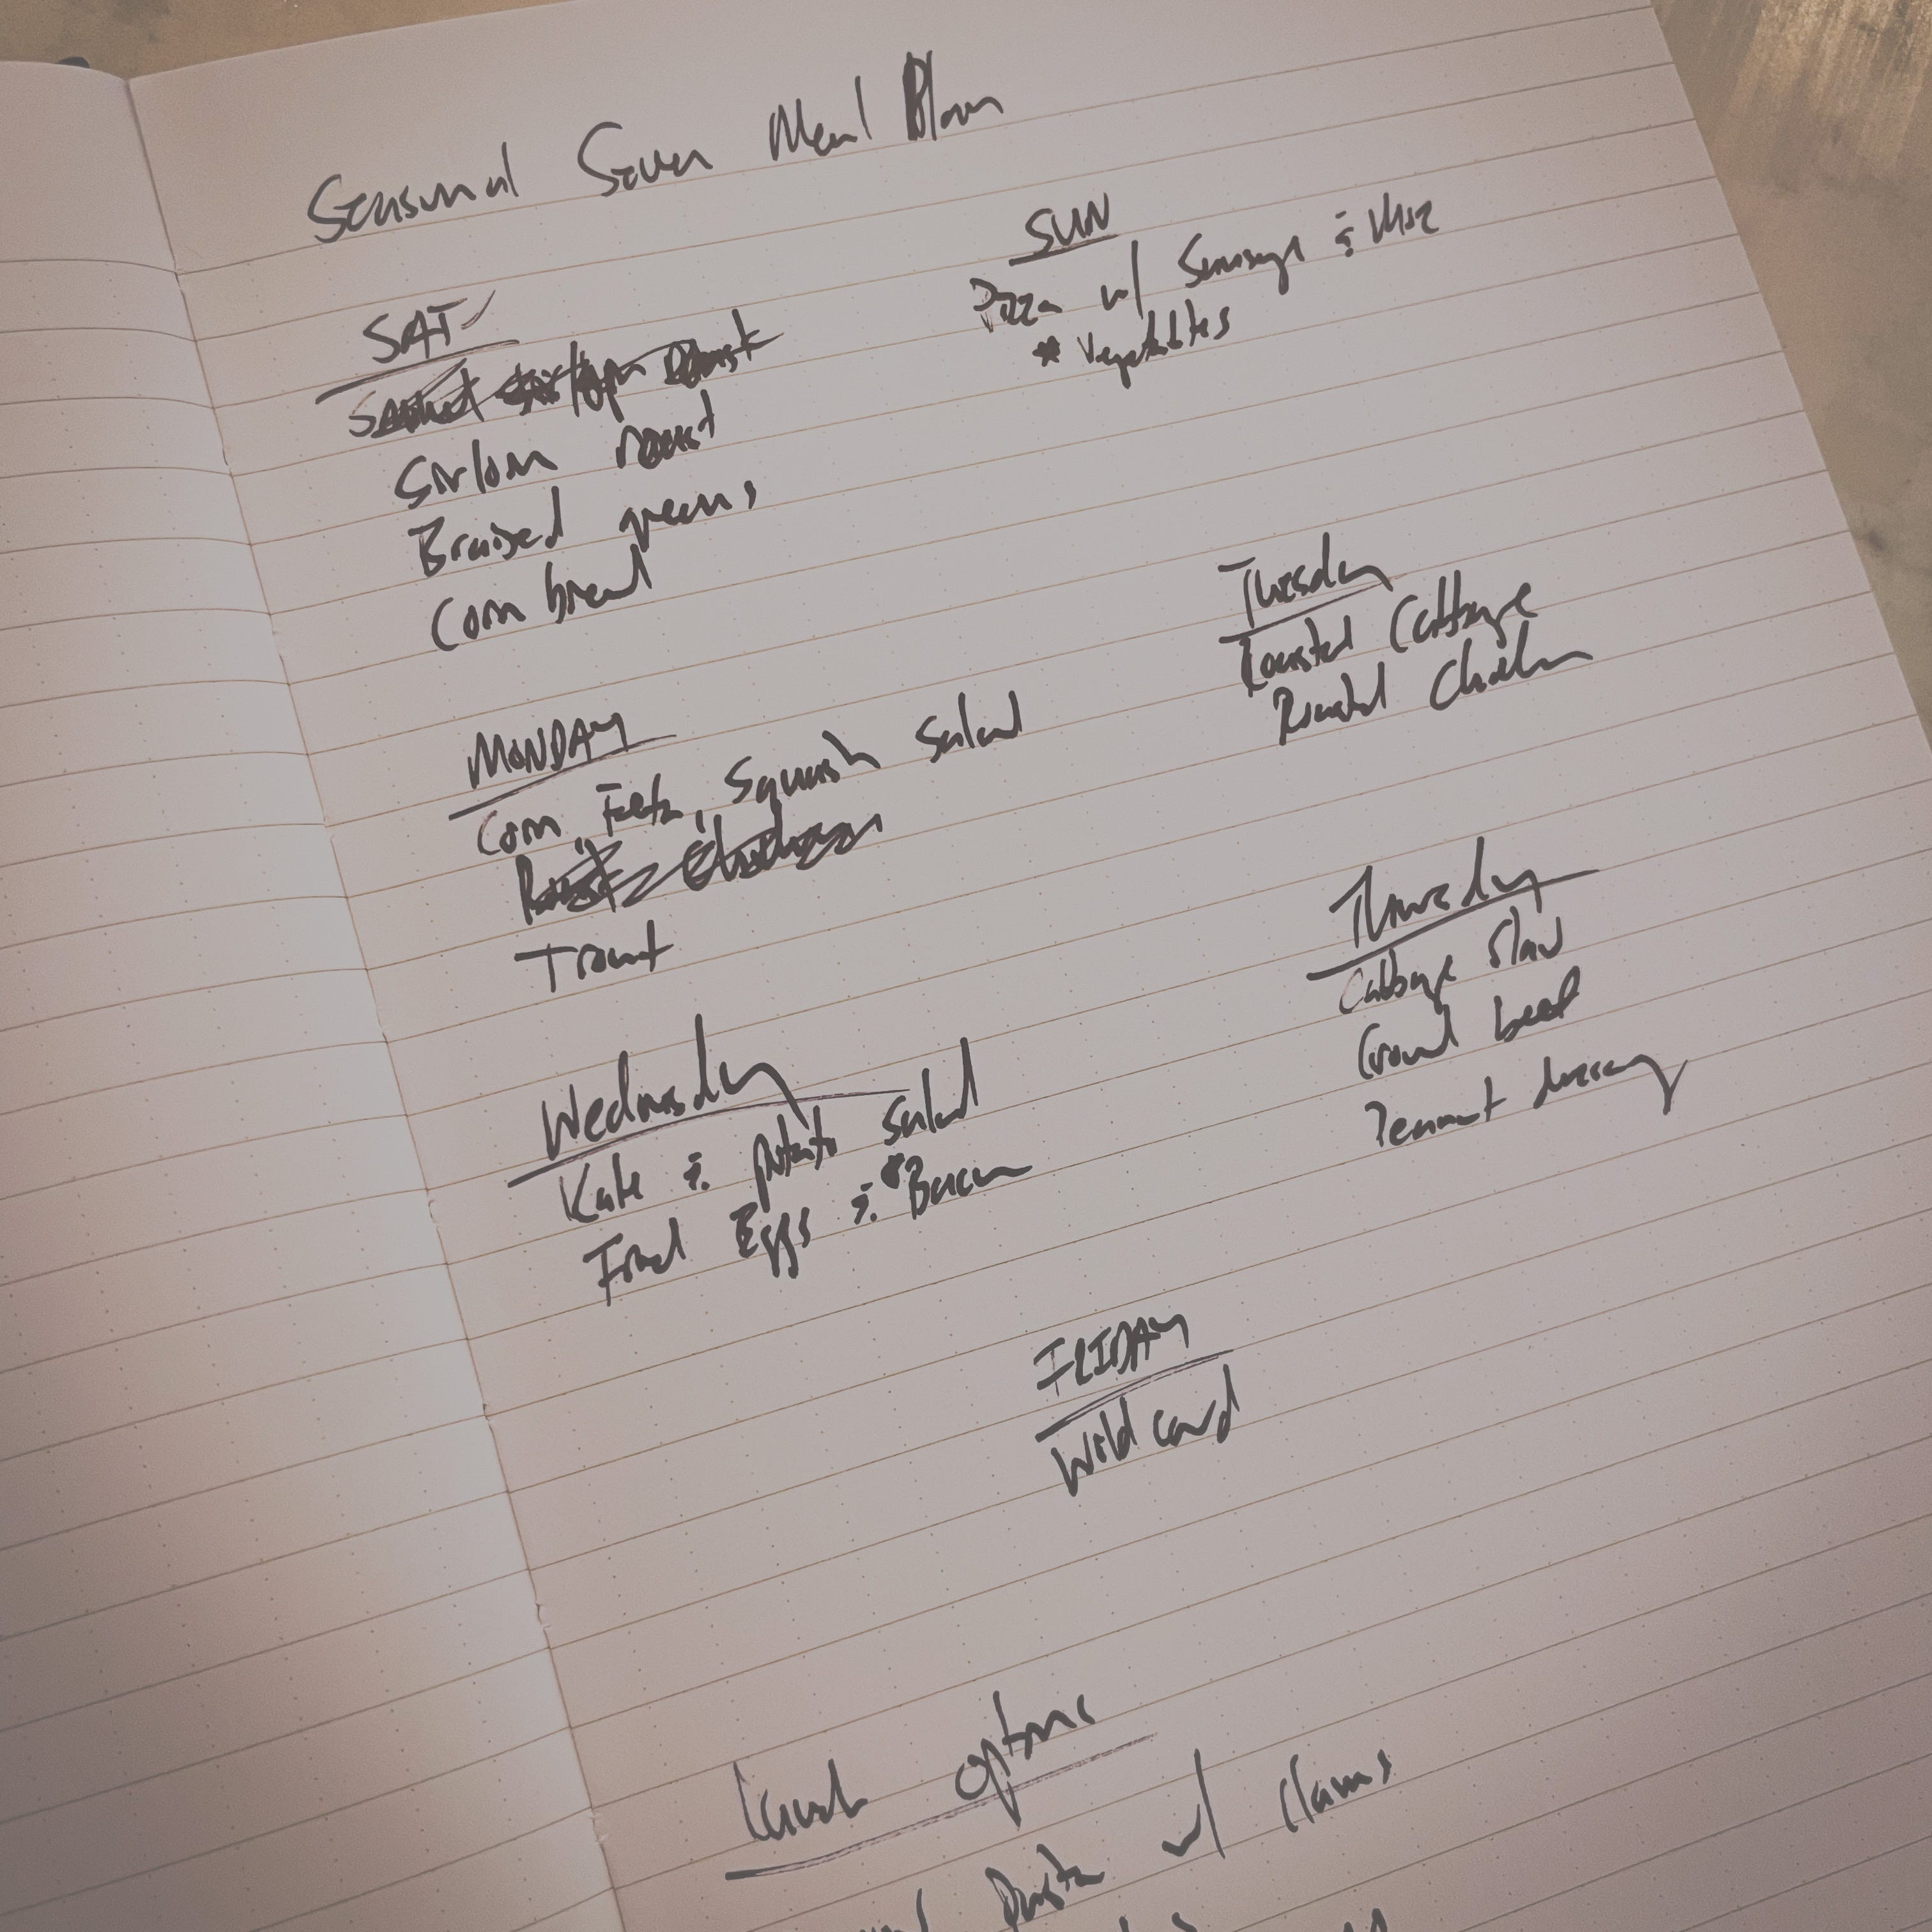 Seasonal Seven Meal Plan
SAT
Sirloin roast
Braised greens
Corn bread
SUN
Pizza w/ Sausage & Moz
* Vegetables
MONDAY
Corn, Feta, Squash Salad
Trout
Tuesday
Roasted Cabbage
Roasted Chicken
Wednesday
Kale & potato salad
Fried Eggs & Bacon
Thursday
Cabbage Slaw
Ground beef
Peanut dressing
FRIDAY
Wild card
Lunch options
Pasta w/ Clams